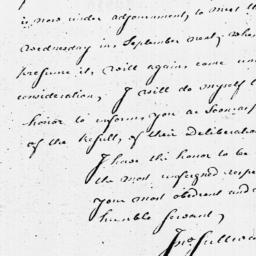 is now under adjournment, to meet t
Wednesday in September next, when
presume it, will again come un
consideration; I will do myself t
honor to inform you as soon as
of the Result, of their deliberation
I have the honor to be
the most unfeigned respe
your most obedient and
humble Servant,
Jno Sulliva